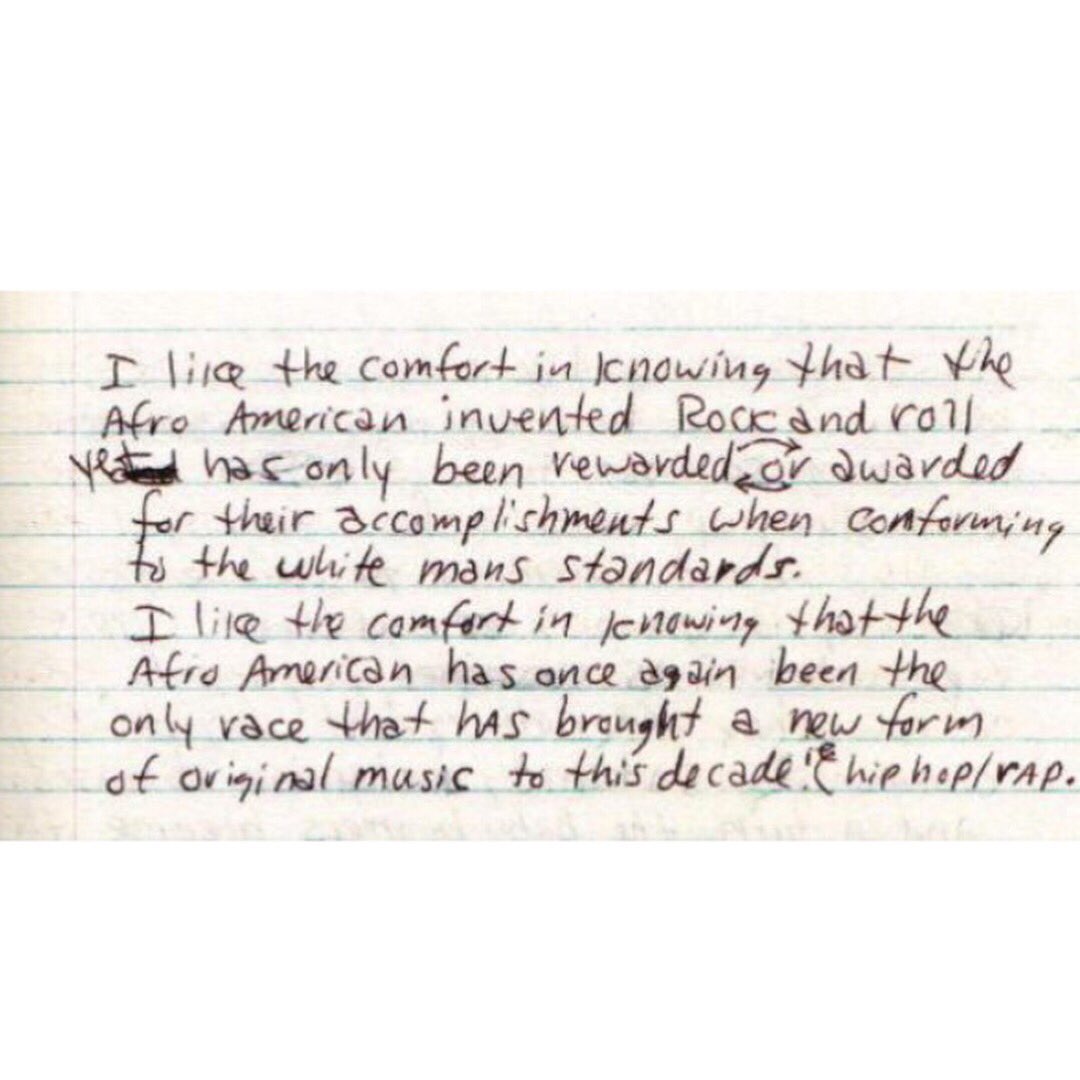 I like the comfort in knowing that the
Afro American invented Rock and roll
yet has only been rewarded or awarded
for their accomplishments when conforming
to the white mans standards.
I like the comfort in knowing that the
Afro American has once again been the
only race that has brought a new form
of original music to this decade! ie hip hop/rap.